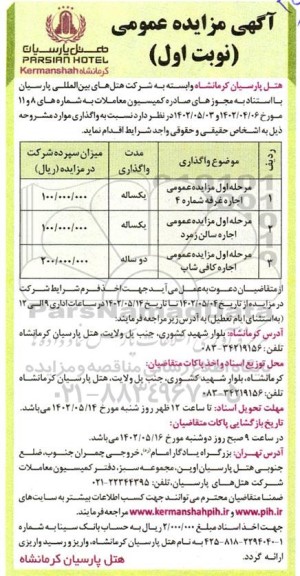 آگهی مزایده عمومی
(نوبت اول)
هتل پارسیان
PARSIAN HOTEL
کرمانشاه Kermanshah
هتل پارسیان کرمانشاه وابسته به شرکت هتل‌های بین‌المللی پارسیان
با استناد به مجوزهای صادره کمیسیون معاملات به شماره های ۸ و ۱۱
مورخ ۱۴۰۲/۰۴/۰۶ و ۱۴۰۲/۰۵/۰۳ در نظر دارد نسبت به واگذاری موارد مشروحه
ذیل به اشخاص حقیقی و حقوقی واجد شرایط اقدام نماید.
ردیف
موضوع واگذاری
مدت واگذاری
میزان سپرده شرکت در مزایده (ریال)
۱
مرحله اول مزایده عمومی اجاره غرفه شماره ۴
یکساله
۱۰۰/۰۰۰/۰۰۰
۲
مرحله اول مزایده عمومی اجاره سالن زمرد
یکساله
۱۰۰/۰۰۰/۰۰۰
۳
مرحله اول مزایده عمومی اجاره کافی شاپ
دو ساله
۲۰۰/۰۰۰/۰۰۰
از متقاضیان دعوت به عمل می آید جهت اخذ فرم شرایط شرکت
در مزایده از تاریخ ۱۴۰۲/۰۵/۰۴ تا تاریخ ۱۴۰۲/۰۵/۱۴ در ساعات اداری ۹ الی ۱۲
(به استثنای ایام تعطیل) به آدرس زیر مراجعه فرمایند:
آدرس کرمانشاه: بلوار شهید کشوری، جنب پل ولایت، هتل پارسیان کرمانشاه
تلفن: ۳۴۲۱۹۱۵۶-۰۸۳
محل توزیع اسناد و اخذ پاکات متقاضیان:
کرمانشاه، بلوار شهید کشوری، جنب پل ولایت، هتل پارسیان کرمانشاه
تلفن: ۳۴۲۱۹۱۵۶-۰۸۳
مهلت تحویل اسناد: تا ساعت ۱۲ ظهر روز شنبه مورخ ۱۴۰۲/۰۵/۱۴ می‌باشد.
تاریخ بازگشایی پاکات متقاضیان:
در ساعت ۹ صبح روز دوشنبه مورخ ۱۴۰۲/۰۵/۱۶ می‌باشد.
آدرس تهران: بزرگراه یادگار امام(ره)، خروجی چمران جنوب، ضلع
جنوبی هتل پارسیان اوین، مجموعه سبز، دفتر کمیسیون معاملات
شرکت هتل‌های پارسیان، تلفن: ۲۲۳۴۴۳۹۵-۰۲۱
ضمناً متقاضیان محترم می توانند جهت کسب اطلاعات بیشتر به سایت‌های
www.pih.ir و www.kermanshahpih.ir مراجعه فرمایند.
جهت اخذ اسناد مبلغ ۲/۰۰۰/۰۰۰ ریال به حساب بانک سینا به شماره
۴۲۵-۸۱۸-۲۲۹۴۰۴۰-۱ به نام هتل پارسیان کرمانشاه، واریز و رسید واریزی
ارائه گردد.
هتل پارسیان کرمانشاه